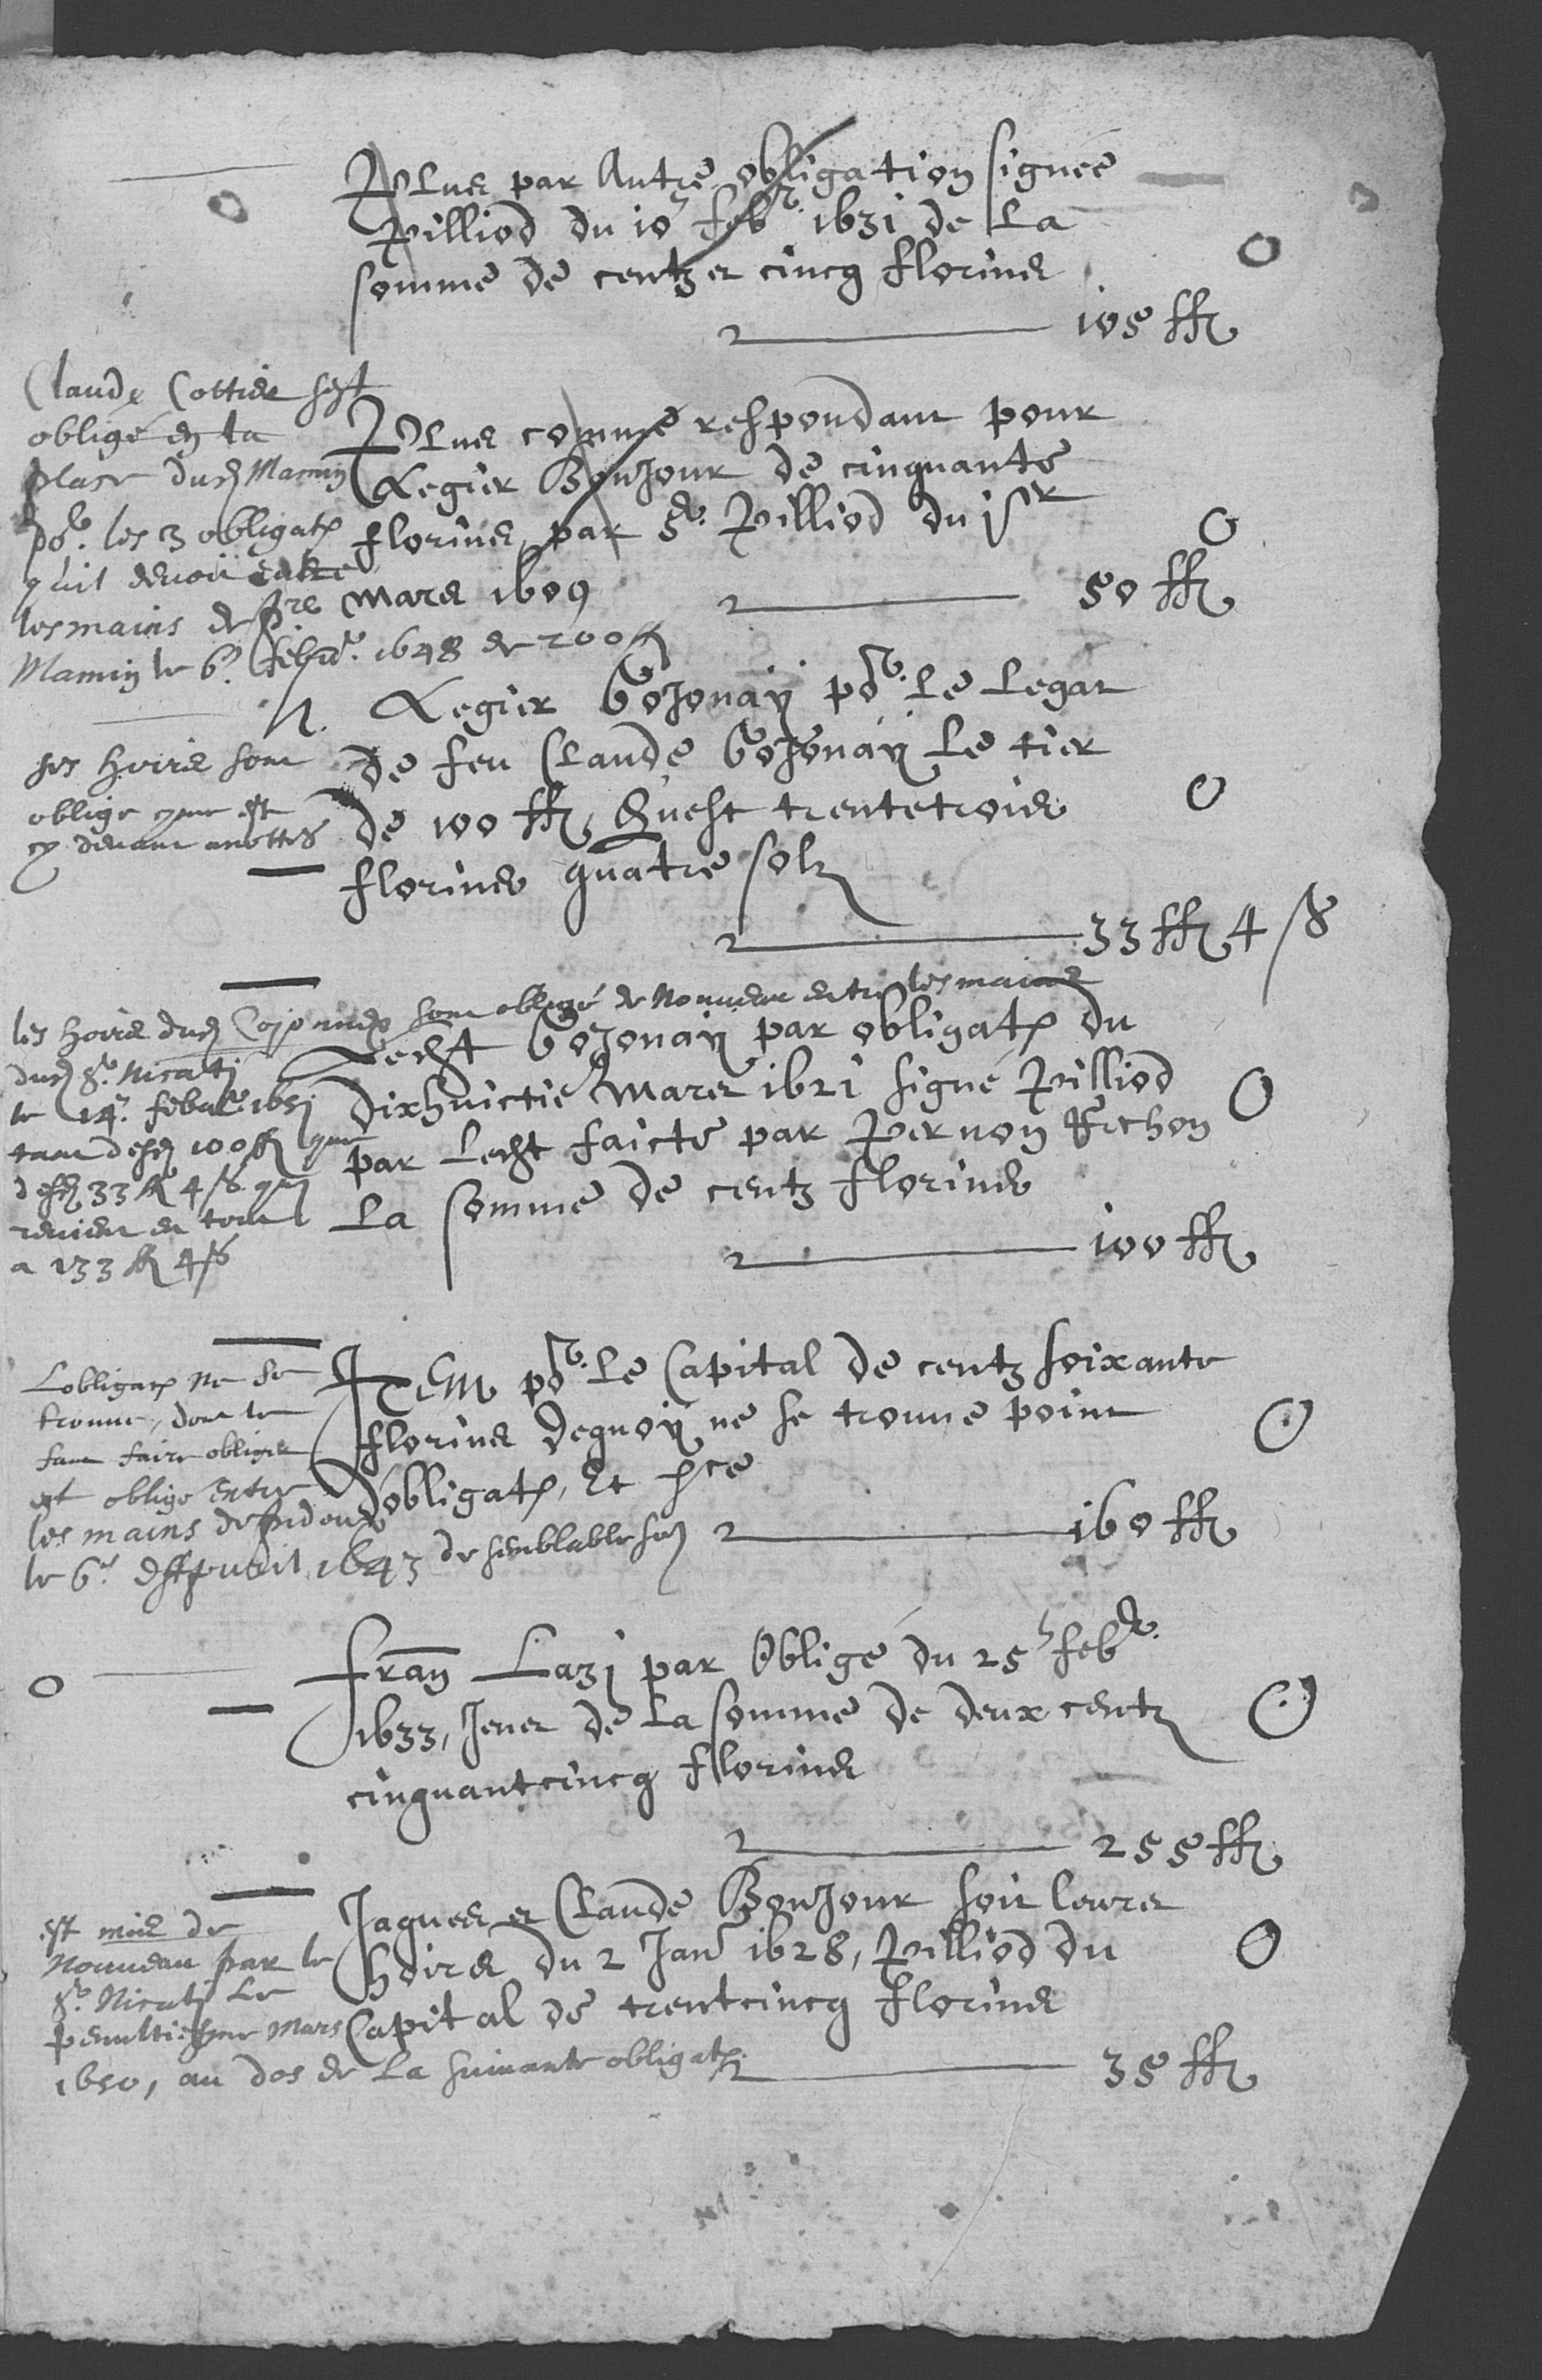 Plus par Autre obligation signée
Pilliod du 10 febr. 1631 de la
somme de centz et cincq florins
105 ff
Claude Cottier sest
obligé en la
place dud Mamin
po.r les 3 obligat
quil devoit entre
les mains de
Mamin le 6. feb.r 1648 de 200 ff
Plus comme respondant pour
Legier Bonjour de cinquante
florins, par S.r Pilliod du 1er
Mars 1609
50 ff
Legier Cojonay po.r le legat
de feu Claude Cojonay le tier
de 100 ff, Quest trentetrois
florins quatre solz
33 ff 4 ß
ses hoirs sont
obligé come est
cy devant
les hoirs dud Cojonay sont obligé de Nouveau entre les mains
dud S.r Nicati
le 14. feb.r 1651
tant desd 100 ff que
desd 33 ff 4 ß que
revient en tout
a 133 ff 4 ß
Lecht Cojonay par obligat du
dixhuictie Mars 1621 signé Pilliod
par Lecht faicte par Pernon Rechon
La somme de centz florins
100 ff
Lobligat ne se
trouve, dont le
faut faire obliger
est obligé entre
les mains de
le 6. 1643 de semblable
ITEM po.r le Capital de centz soixante
florins dequoy ne se trouve point
dobligat, Et
160 ff
Fran Lazi par Obligé du 25 feb.r
1633, Jener de la somme de deux centz
cinquantcincq florins
255 ff
est mis de
Nouveau par le
S.r Nicati Le
penultiesme Mars
1650, au dos de la suivante obligat
Jaques et Claude Bonjour soit leurs
hoirs du 2 Jan.r 1628, Pilliod du
Capital de trentcincq florins
35 ff